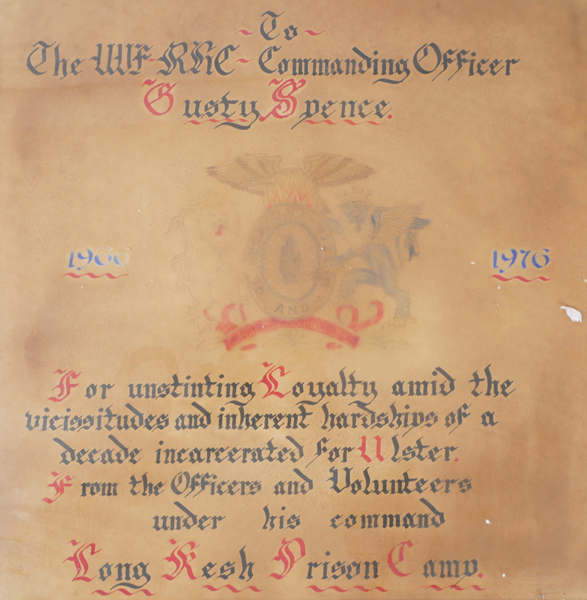 ~ To ~
The UVF-RHC ~ Commanding Officer
Gusty Spence.
1966
1976
AND
For unstinting Loyalty amid the
vicissitudes and inherent hardships of a
decade incarcerated for Ulster.
From the Officers and Volunteers
under his command
Long Kesh Prison Camp.